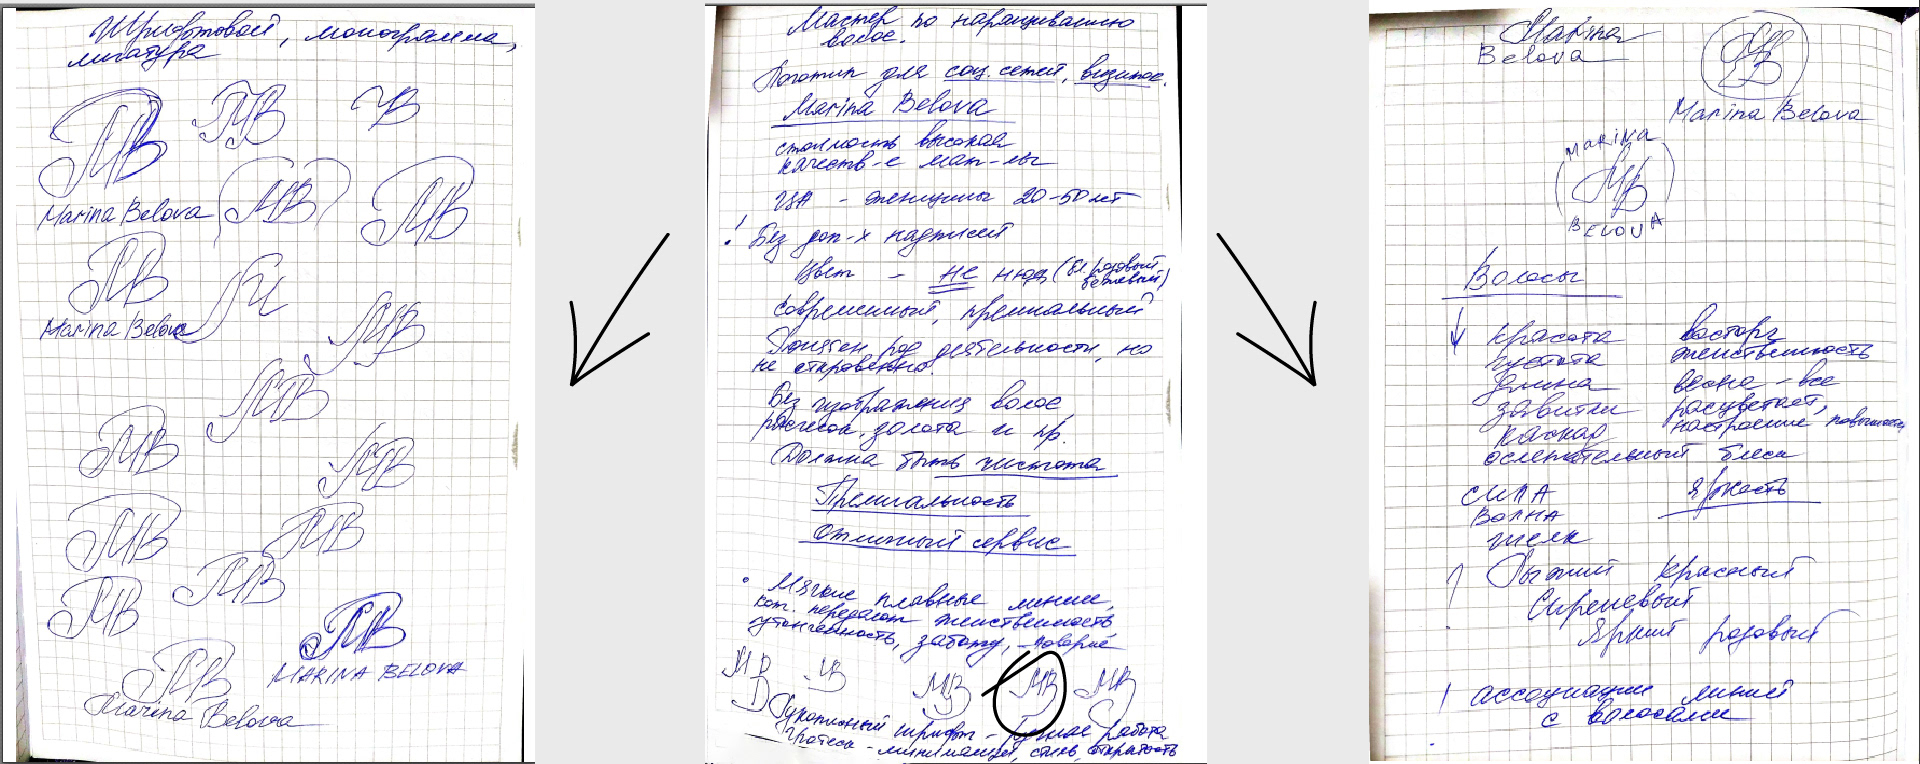 Шрифтовой, монограмма,
лигатура
МВ
МВ
МВ
МВ
МВ
Marina Belova
МВ
Marina Belova
МВ
МВ
МВ
МВ
МВ
МВ
МВ
МВ
МВ
MARINA BELOVA
МВ
Marina Belova
Мастер по наращиванию
волос.
Логотип для соц. сетей, визиток.
Marina Belova
стоимость высокая
качеств-е мат-лы
ЦА - женщины 20-50 лет
! Без доп-х надписей
Цвет - не нюд (бл. розовый
бежевый)
Современный, премиальный
Понятен род деятельности, но
не откровенно.
Без изображения волос
расчесок, золота и пр.
Должна быть чистота
Премиальность
Отличный сервис
Мягкие плавные линии,
кот. передают женственность
утонченность, заботу, доверие
МВ
МВ МВ МВ
Рукописный шрифт - ручная работа
Гротеск - минимализм, стиль, открытость
Marina
Belova
МВ
Marina Belova
MARINA
МВ
BELOVA
Волосы
красота восторг
густота женственность
длина весна - все
завитки расцветает,
каскад настроение повышается
ослепительный блеск
СИЛА яркость
ВОЛНА
шелк
? Рыжий красный
Сиреневый
Яркий розовый
! ассоциации линий
с волосами